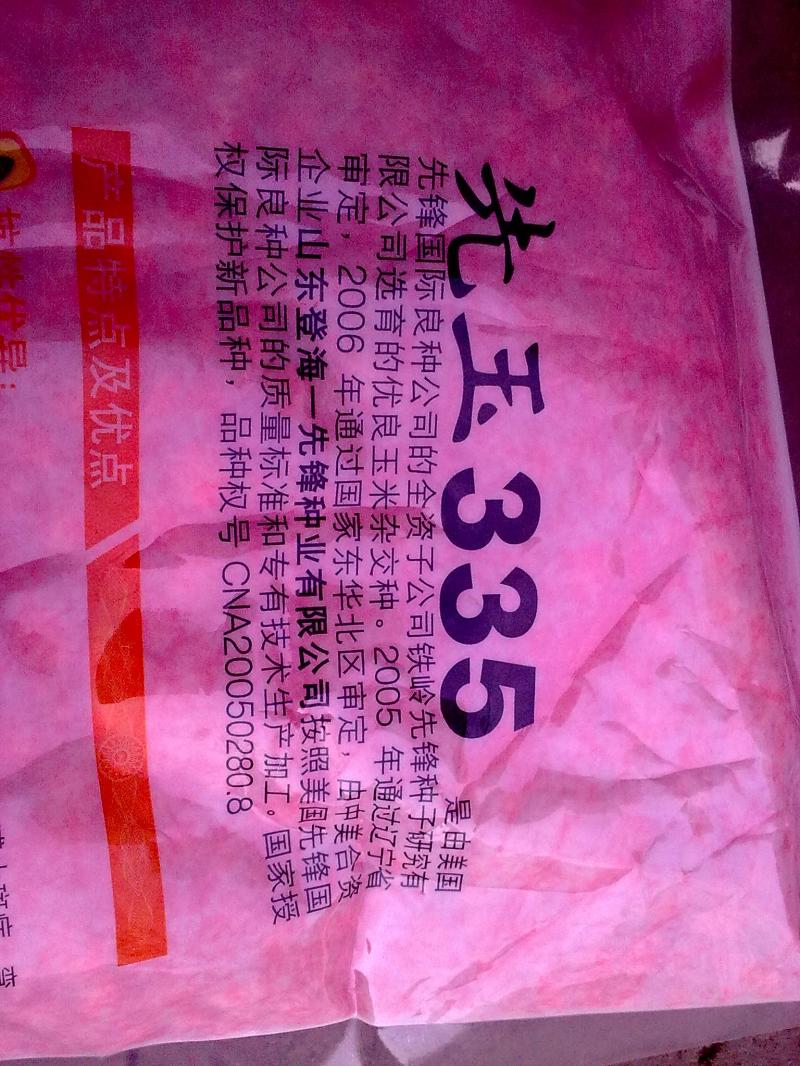 先玉335
是由美国
先锋国际良种公司的全资子公司铁岭先锋种子研究有
限公司选育的优良玉米杂交种。2005 年通过辽宁省
审定，2006 年通过国家东华北区审定，由中美合资
企业山东登海一先锋种业有限公司按照美国先锋国
际良种公司的质量标准和专有技术生产加工。国家授
权保护新品种，品种权号 CNA20050280.8
产品特点及优点